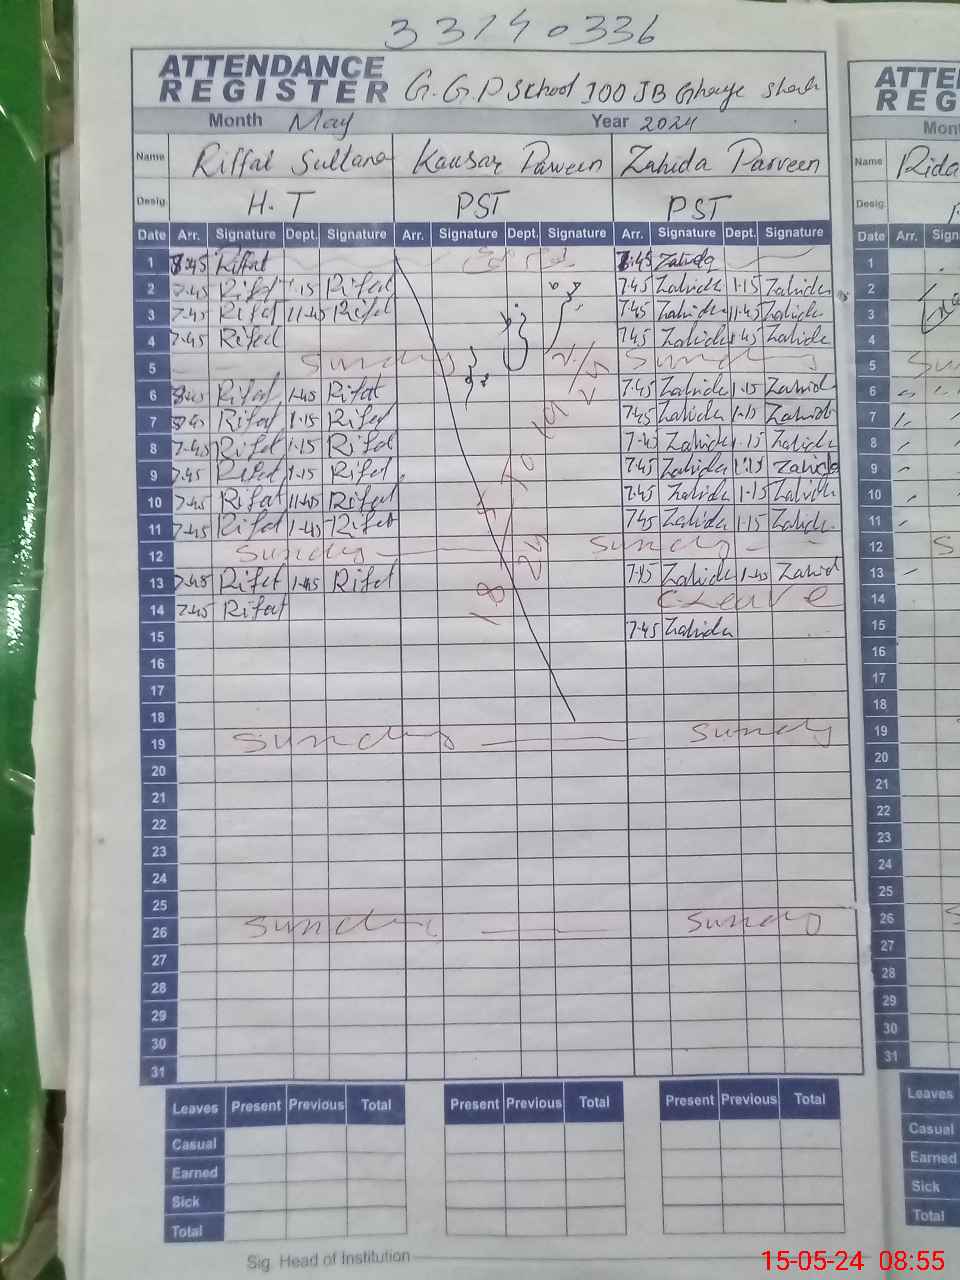 33140336
ATTENDANCE
REGISTER G.G.P School 100 JB
Month May Year 2024
Name Riffat Sultana Kausar Parveen Zahida Parveen
Desig. H.T PST PST
Date Arr. Signature Dept. Signature Arr. Signature Dept. Signature Arr. Signature Dept. Signature
1 Riffat 7:45 Zahida
2 7:45 Rifat 1:15 Rifat 7:45 Zahida 1:15 Zahida
3 7:45 Rifat 11:45 Rifat 7:45 Zahida 11:45 Zahida
4 7:45 Rifat 7:45 Zahida Zahida
5 Sunday Sunday
6 Rifat 1:45 Rifat 7:45 Zahida 1:15 Zahid
7 Rifat 1:15 Rifat 7:45 Zahida 1:15 Zahida
8 7:45 Rifat 1:15 Rifat 7:45 Zahida 1:15 Zahida
9 7:45 Rifat 1:15 Rifat 7:45 Zahida 1:15 Zahida
10 7:45 Rifat 11:45 Rifat 7:45 Zahida 1:15 Zahida
11 7:45 Rifat 1:45 Rifat 7:45 Zahida 1:15 Zahida
12 Sunday Sunday
13 7:45 Rifat 1:45 Rifat 7:45 Zahida 1:45 Zahid
14 7:45 Rifat C-Leave
15 7:45 Zahida
16
17
18
19 Sunday Sunday
20
21
22
23
24
25
26 Sunday Sunday
27
28
29
30
31
Leaves Present Previous Total Present Previous Total Present Previous Total
Casual
Earned
Sick
Total
Sig. Head of Institution
ATTE
REG
Mon
Name Rida
Desig.
Date Arr. Sign
1
2
3
4
5
6
7
8
9
10
11
12
13
14
15
16
17
18
19
20
21
22
23
24
25
26
27
28
29
30
31
Leaves
Casual
Earned
Sick
Total
15-05-24 08:55